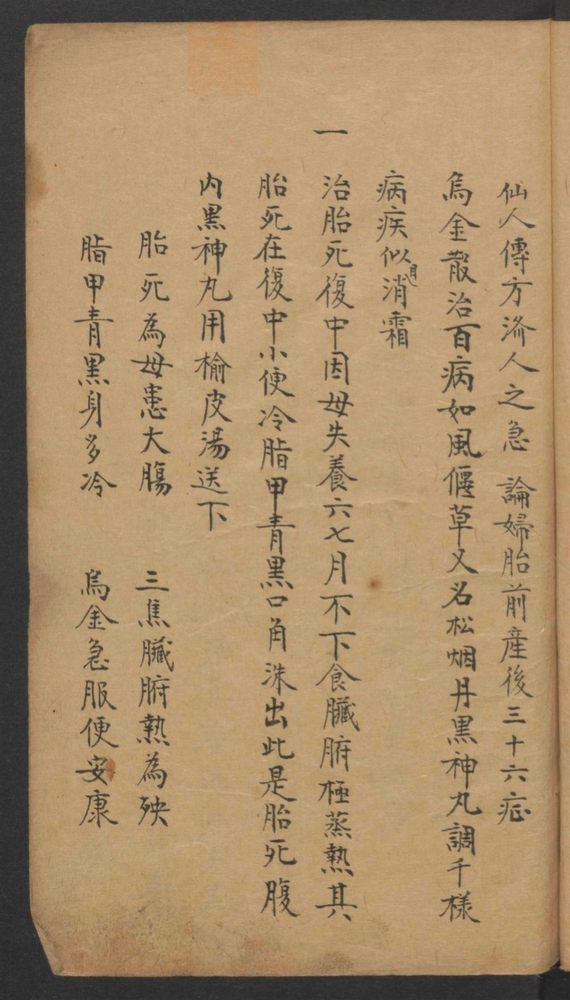 仙人傳方濟人之急　論婦胎前産後三十六症
烏金散治百病如風偃草又名松烟丹黑神丸調千樣
病疾似見消霜
一　治胎死復中因母失養六七月不下食臟腑極蒸熱其
胎死在復中小便冷脂甲青黑口角洙出此是胎死腹
内黑神丸用榆皮湯送下
胎死為母患大腸　三焦臟腑熱為殃
脂甲青黑身多冷　烏金急服便安康